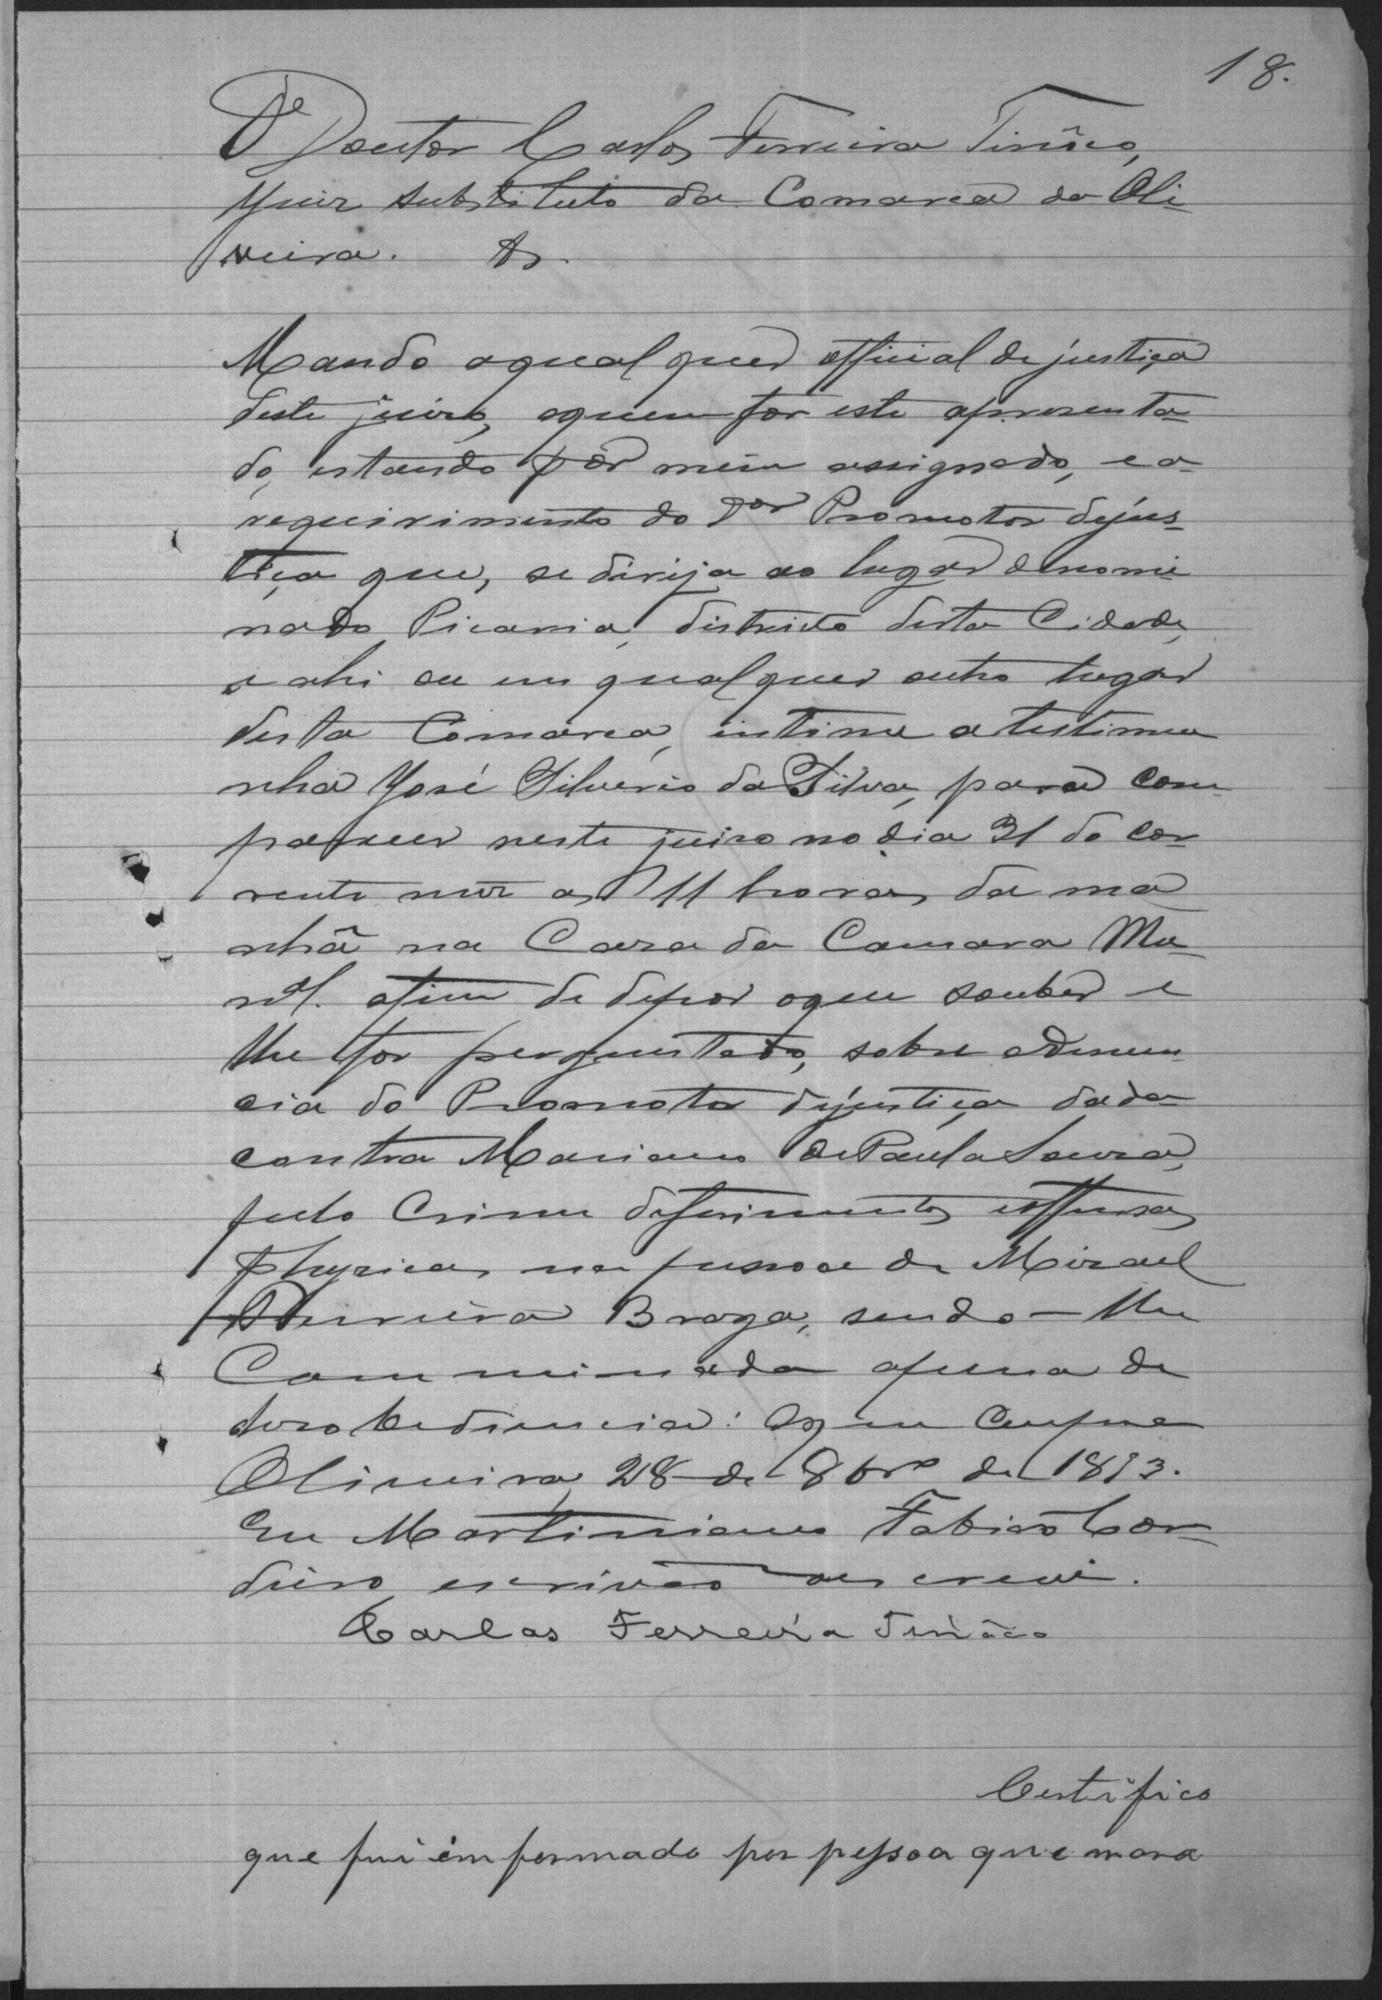 18.
O Doutor Carlos Ferreira Tinôco,
Juiz substituto da Comarca da Oli-
veira. &.
Mando aqualquer official de justiça
deste juizo, aquem for este apresenta-
do, estando por mim assignado, e a
requirimento do Dor Promotor dejus-
tiça que, se dirija ao lugar denomi-
nado Picania, districto desta Cidade,
e ahi ou em qualquer outro lugar
desta Comarca, intime a testimu-
nha José Silverio da Silva, para com-
parecer neste juizo no dia 31 do cor-
rente mez as 11 horas da ma-
nhã na Caza da Camara Mu-
nal. afim de depor oque souber e
lhe for perguntado, sobre adenun-
cia do Promotor dejustiça dada
contra Mariano de Paula Souza,
pelo Crime deferimentos e offensas
physicas na pessoa de Mizael
Ferreira Braga, sendo-lhe
Comminada apena de
desobediencia: Oq ue Cumpra
Oliveira, 28 de 8bro de 1893.
Eu Martiniano Fabião Cor-
deiro escrivão o escrevi.
Carlos Ferreira Tinôco
Certifico
que fui emformado por pessoa que mora